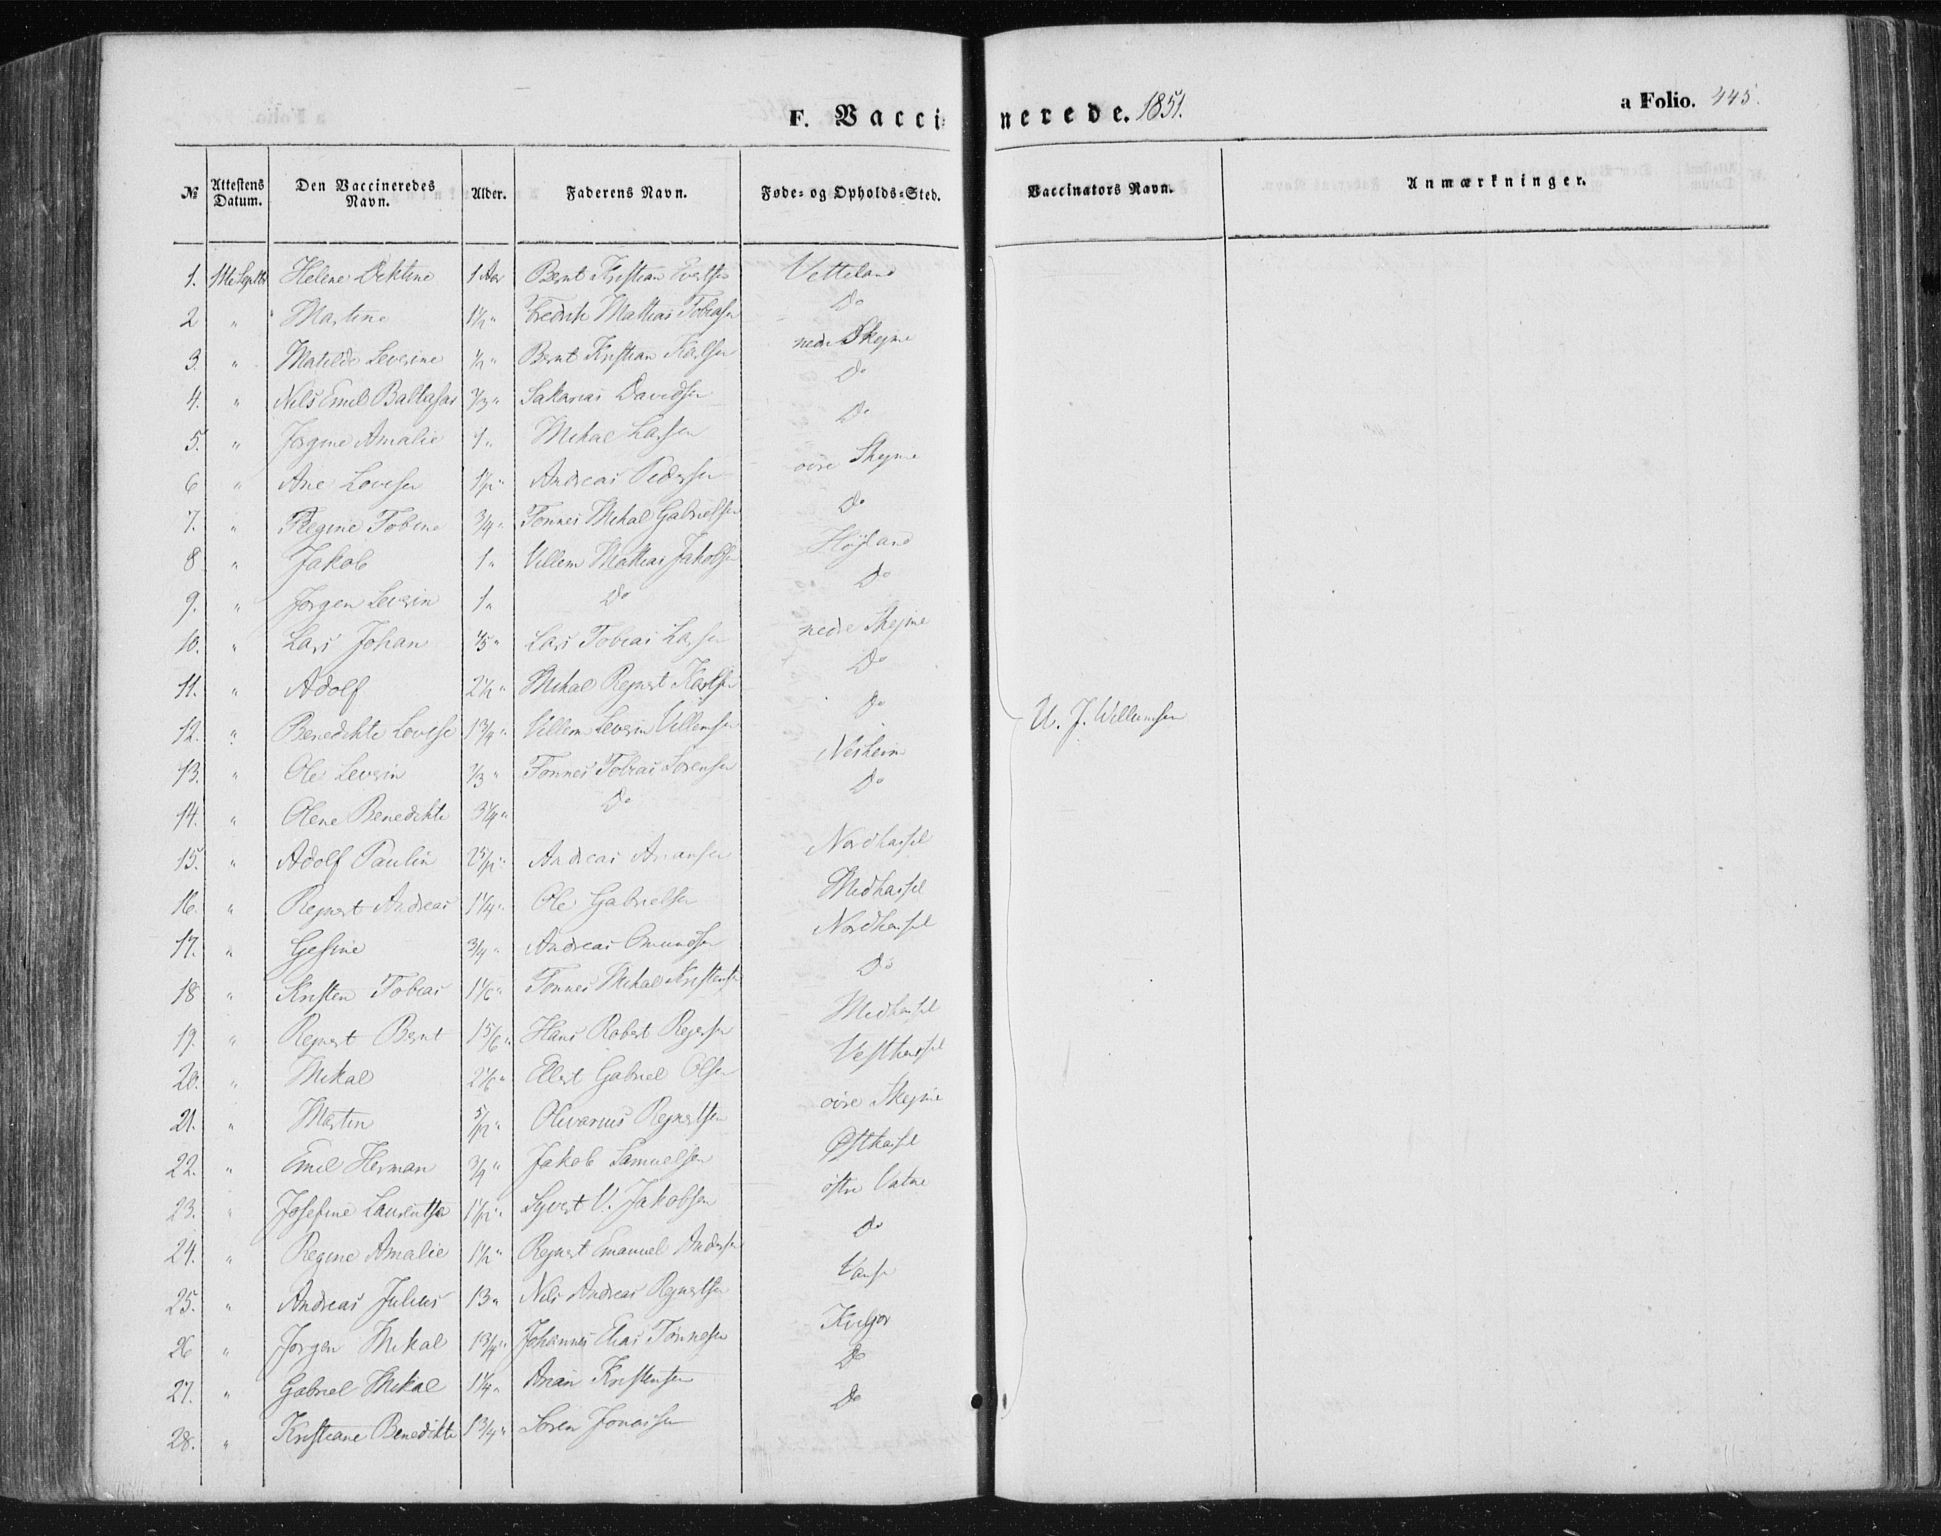 F. Vaccinerede. 1851. a Folio. 445.
№ Attestens Datum. Den Vaccineredes Navn. Alder. Faderens Navn. Føde- og Opholds-Sted. Vaccinators Navn. Anmærkninger.
1. Helene Dektine 1 Aar Bernt Kristian Evertsen Vetteland
2 " Martine 1½ " Fredrik Mattias Tobiasen Do
3. " Matilde Severine ½ " Bernt Kristian Karlsen nedre Skejme
4. " Nils Emil Baltasar ⅔ " Sakarias Davidsen Do
5. " Jørgine Amalie 1 " Mikal Larsen Do
6 " Ane Lovise " Andreas Pedersen øvre Skejme
7. " Regine Tobine ¾ " Tønnes Mikal Gabrielsen Do
8 " Jakob 1 " Villem Mattias Jakobsen Højland
9. " Jørgen Severin 1 " Do Do
10. " Lars Johan " Lars Tobias Larsen nedre Skejme
11. " Adolf 2½ " Mikal Rejnert Karlsen Do
12. " Benedikte Lovise 1¾ " Villem Severin Villemsen Do
U. J. Willumsen
13. " Ole Severin ⅔ " Tønnes Tobias Sørensen Nesheim
14. " Olene Benedikte 3¼ " Do Do
15. " Adolf Paulin 2 5/12 " Andreas Ariansen Nordhassel
16. " Rejnert Andreas 1¼ " Ole Gabrielsen Midhassel
17. " Gesine ¾ " Andreas Omundsen Nordhassel
18 " Kristen Tobias 1 1/6 " Tønnes Mikal Kristensen Do
19. " Rejnert Bernt 1 5/6 " Hans Robert Rejersen Midhassel
20. " Mikal 2 1/6 " Ellert Gabriel Olsen Vesthassel
21. " Martin 5/12 " Olivarius Rejnertsen øvre Skejme
22. " Emil Herman ¾ " Jakob Samuelsen Østhassel
23. " Josefine Laurentse " Syvert V. Jakobsen østre Vatne
24. " Regine Amalie 1½ " Rejnert Emanuel Andersen Do
25. " Andreas Julius 13 " Nils Andreas Rejnertsen Vanse
26 " Jørgen Mikal 1¾ " Johannes Elias Tønnesen Kviljor
27. " Gabriel Mikal 1¼ " Arian Kristensen Do
28. " Kristiane Benedikte 1¾ " Søren Jonassen Do